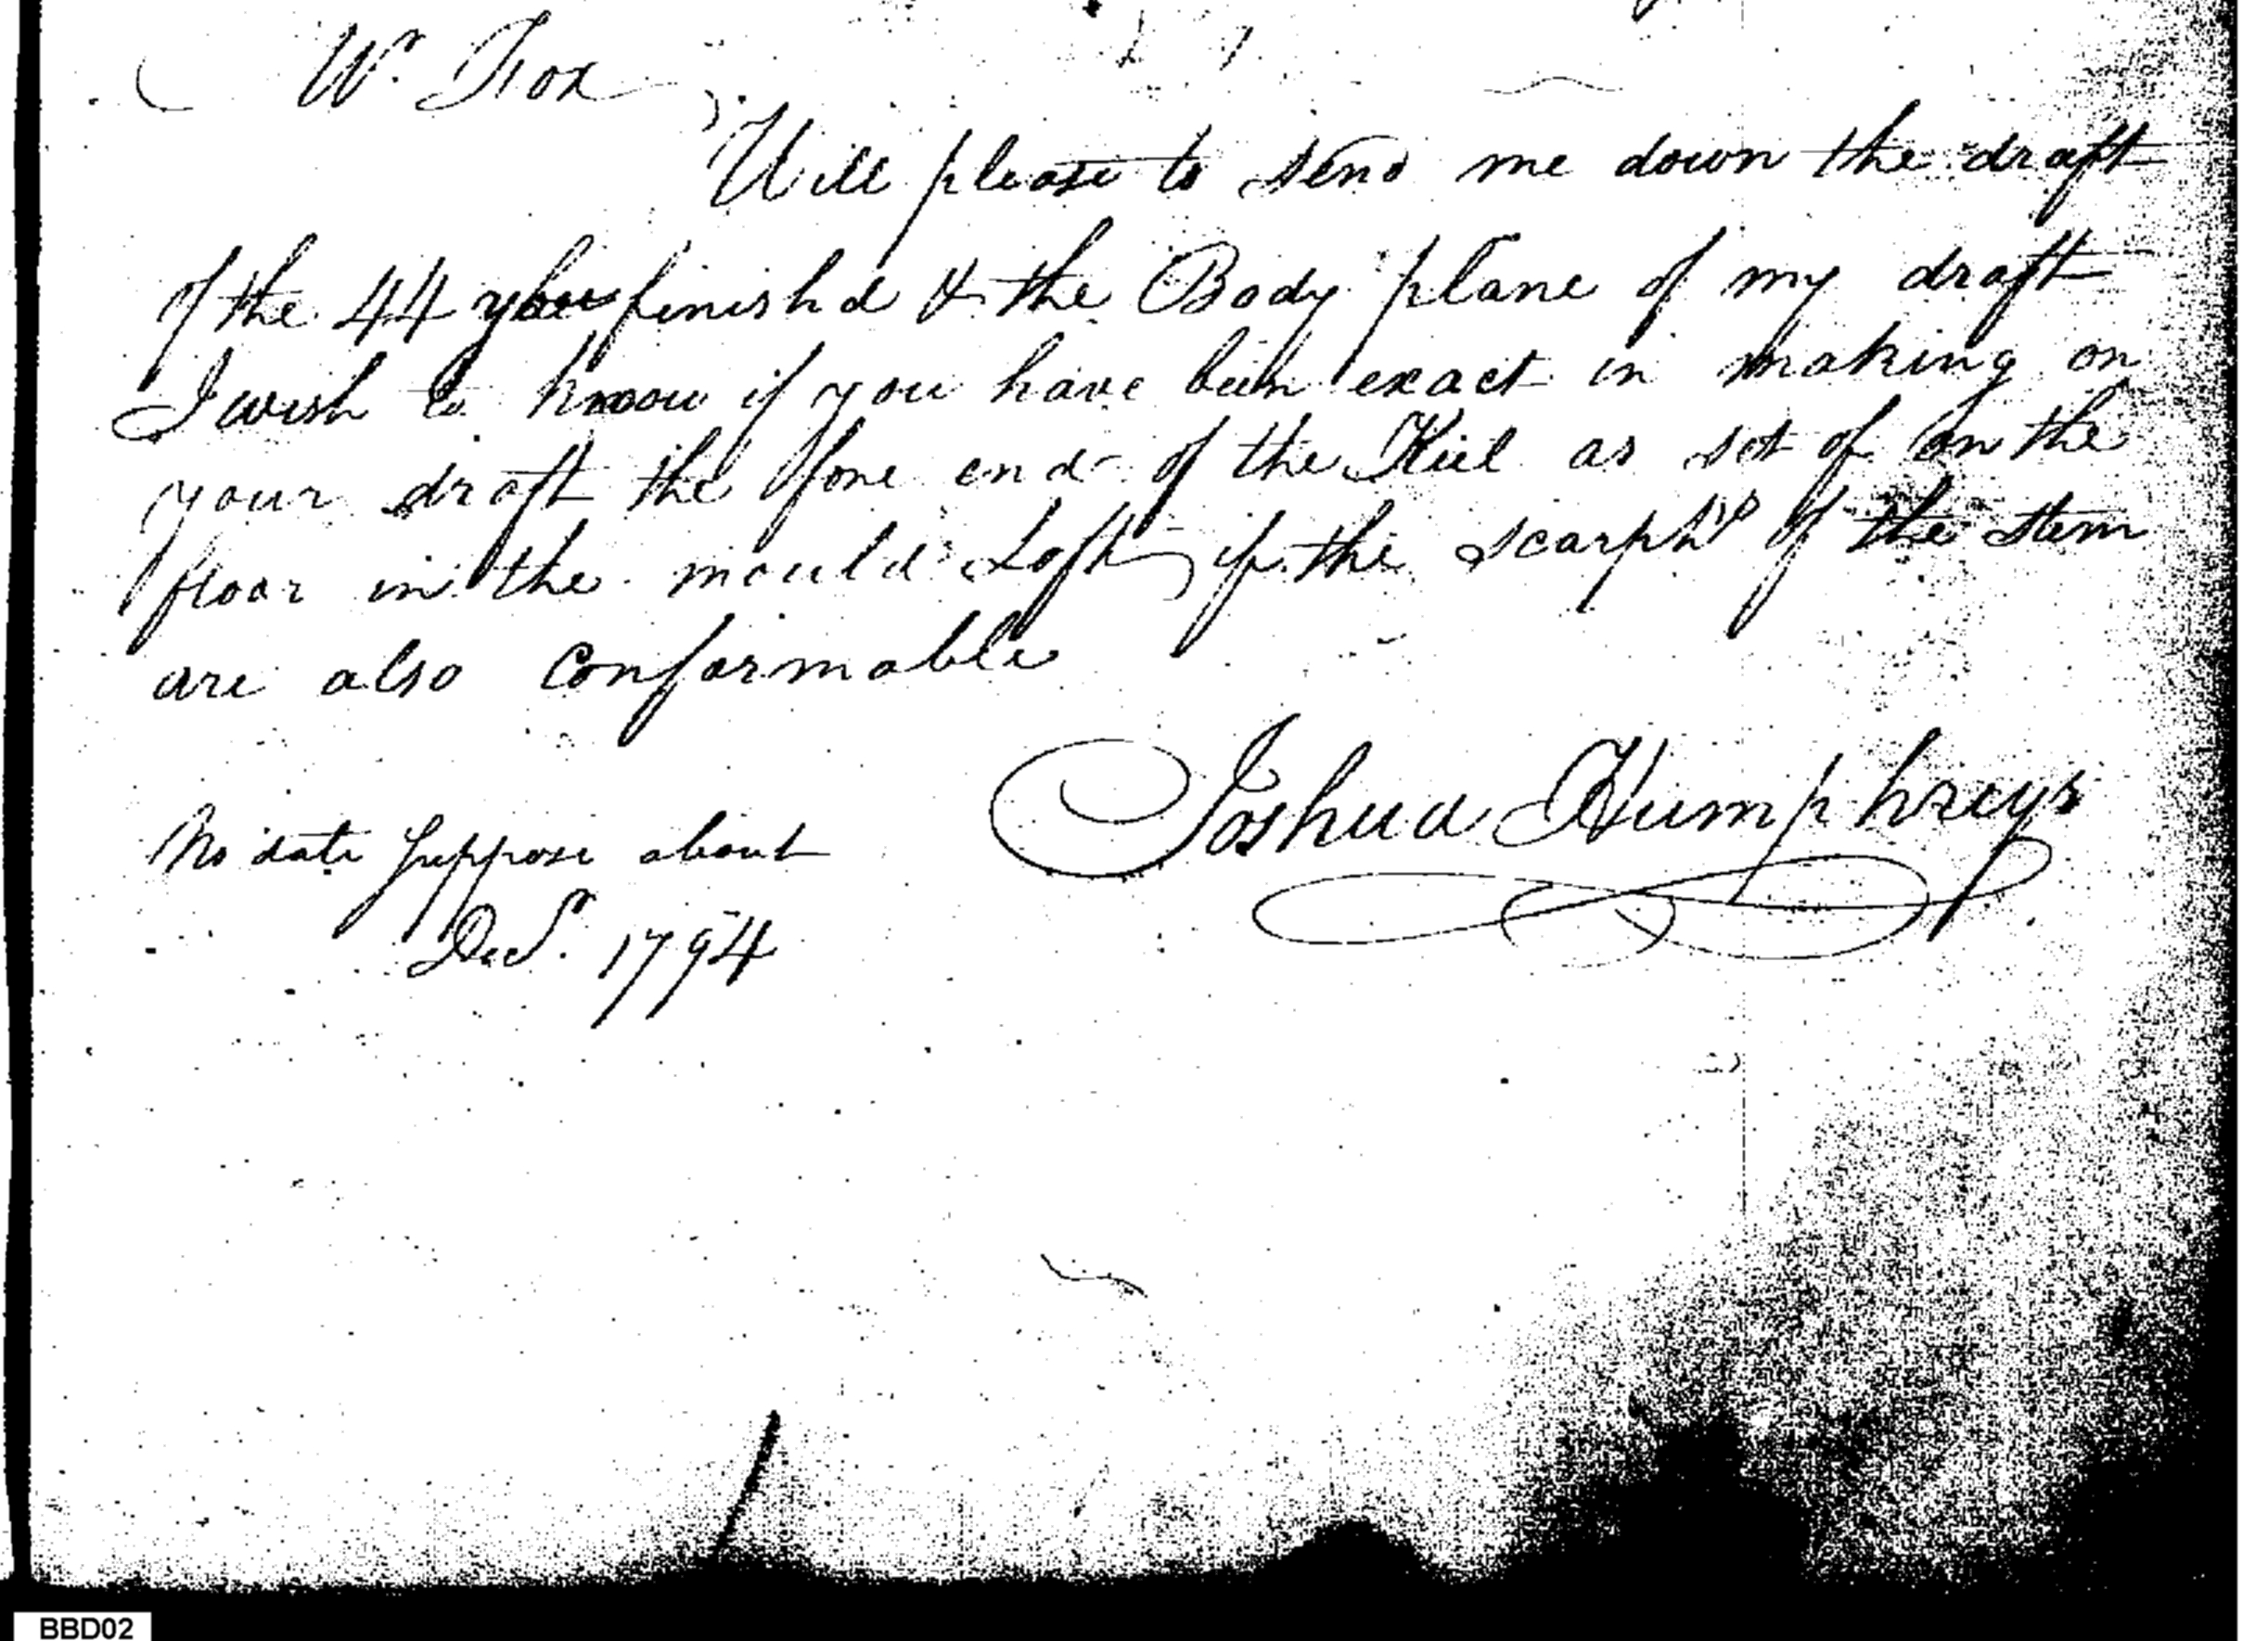 Wm. Fox
Will please to send me down the draft
of the 44 you finishd & the Body plane of my draft
I wish to know if you have been exact in making on
your draft the fore end of the Keel as set of on the
floor in the mould Loft, if the scarphs of the stem
are also Conformable
Joshua Humphreys
No date Suppose about
Decr. 1794
BBD02